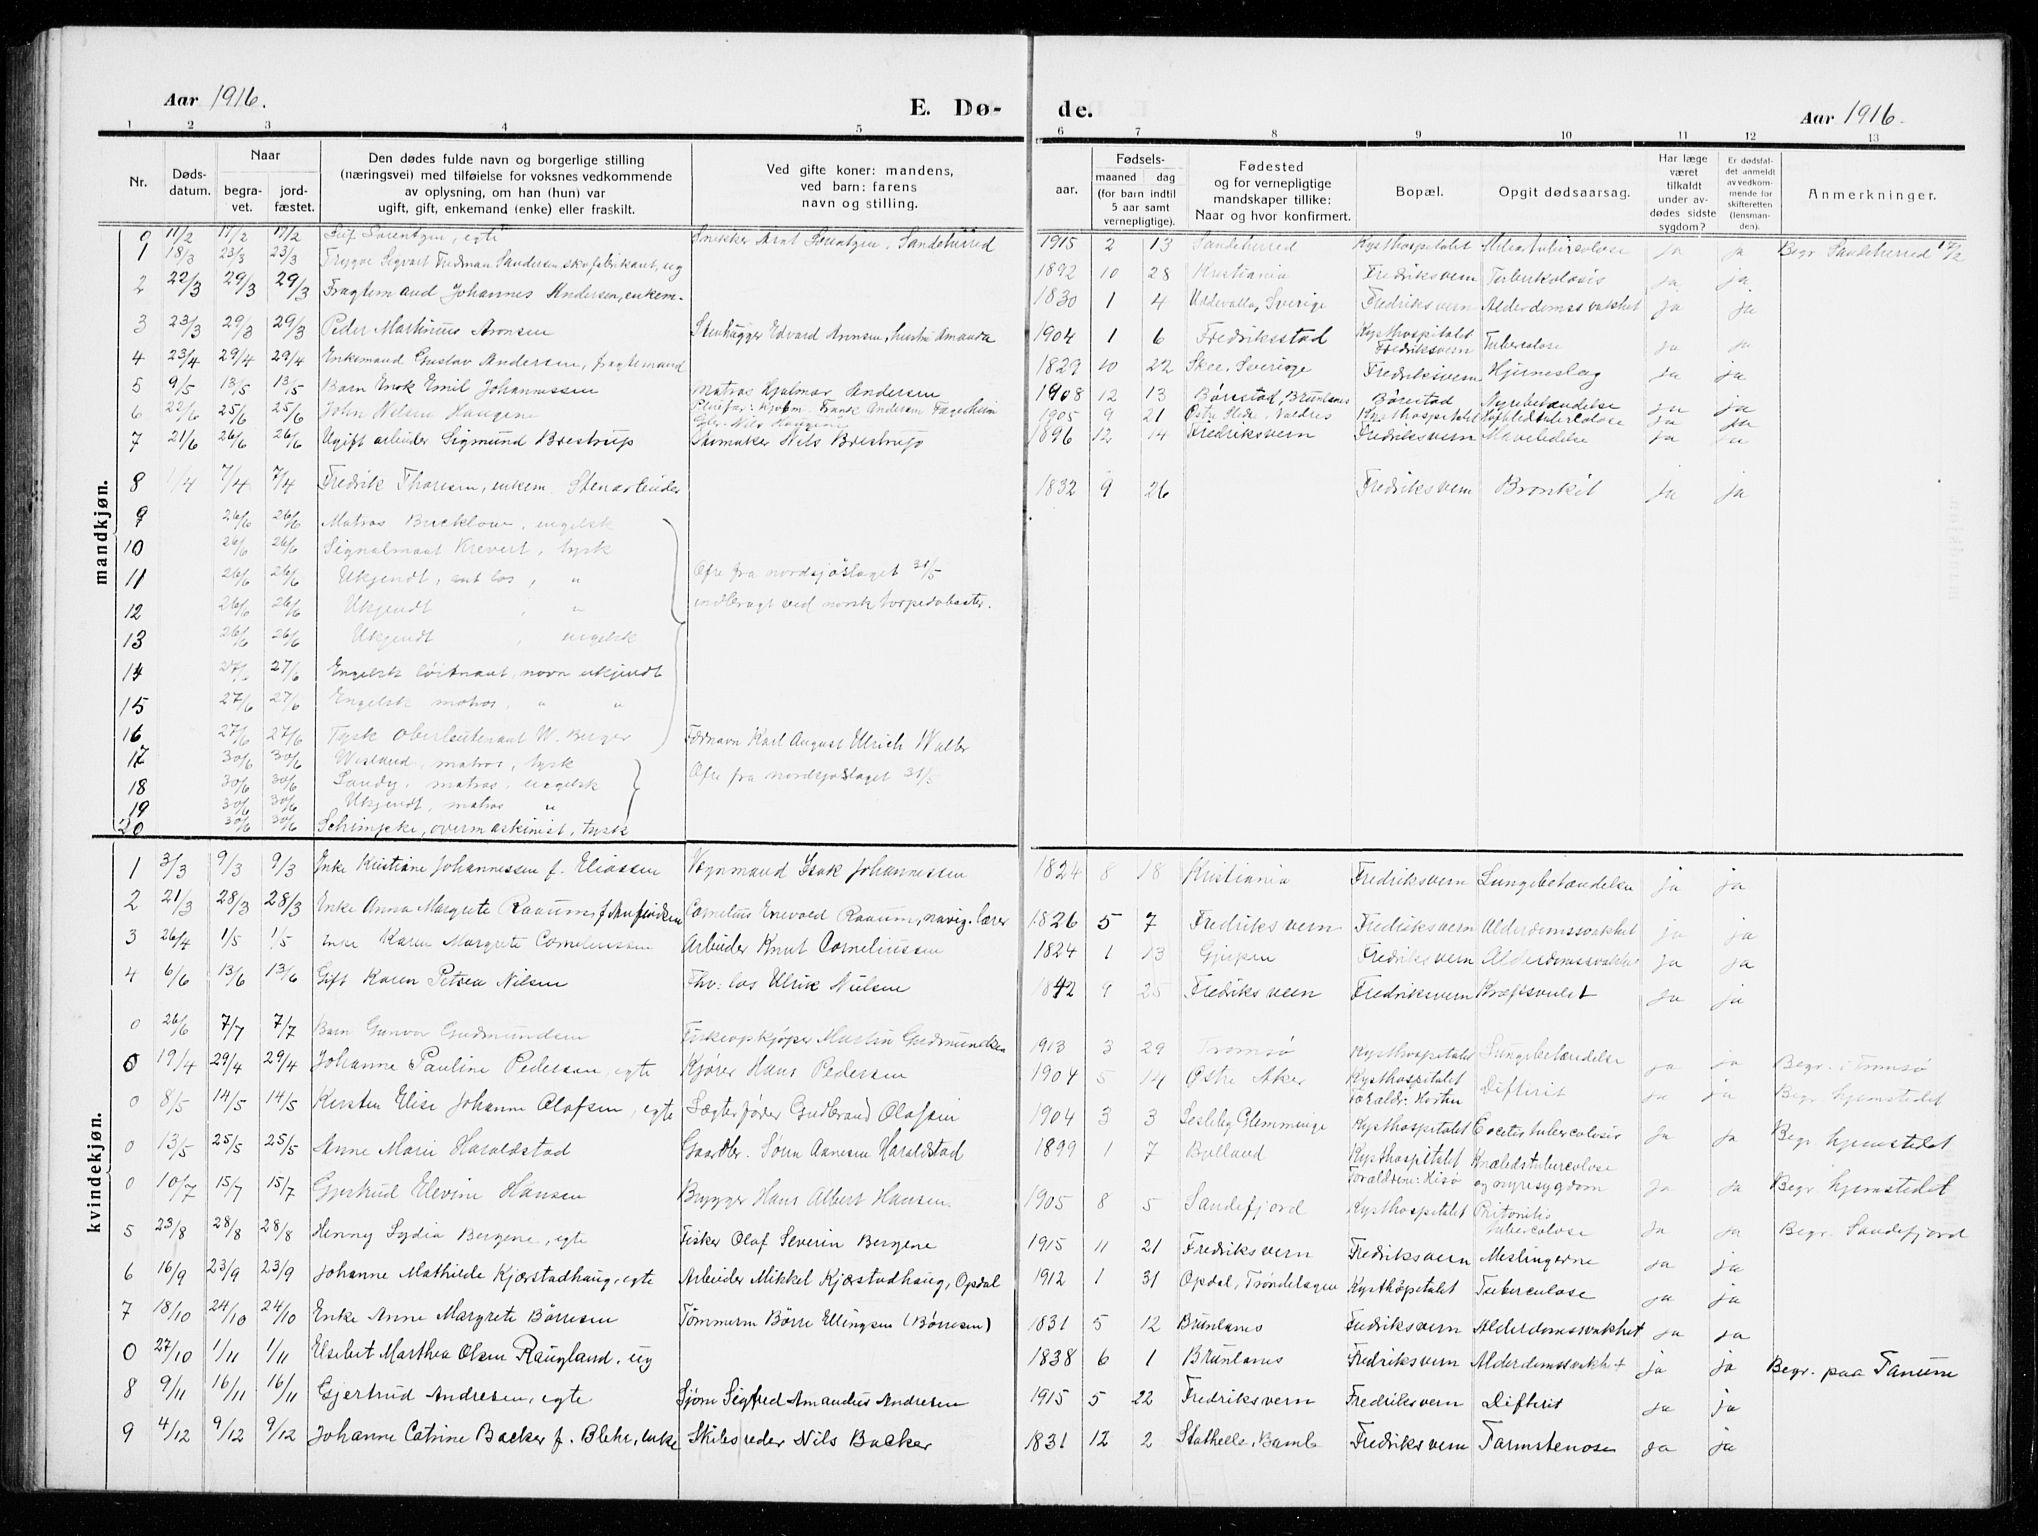 Aar 1916.
E. Dø-
de.
Aar 1916.
1 2 3 4 5 6 7 8 9 10 11 12 13
Nr.
Døds-
datum.
Naar
begra-
vet.
jord-
fæstet.
Den dødes fulde navn og borgerlige stilling
(næringsvei) med tilføielse for voksnes vedkommende
av oplysning, om han (hun) var
ugift, gift, enkemand (enke) eller fraskilt.
Ved gifte koner: mandens,
ved barn: farens
navn og stilling.
Fødsels-
aar.
maaned dag
(for barn indtil
5 aar samt
vernepligtige).
Fødested
og for vernepligtige
mandskaper tillike:
Naar og hvor konfirmert.
Bopæl.
Opgit dødsaarsag.
Har læge
været
tilkaldt
under av-
dødes sidste
sygdom?
Er dødsfal-
det anmeldt
av vedkom-
mende for
skifteretten
(lensman-
den).
Anmerkninger.
mandkjøn.
0 11/2 17/2 17/2 Leif Lorentzen, egte Snekker Arnt Lorentzen, Sandeherred 1915 2 13 Sandeherred Kysthospitalet ja ja Begr. Sandeherred 17/2
1 18/3 23/3 23/3 Trygve Sigvart Fredman Sandersen, skofabrikant, ug 1892 10 28 Kristiania Fredriksvern Tuberkulosis ja ja
2 22/3 29/3 29/3 Fragtemand Johannes Andersen, enkem. 1830 1 4 Uddevalla, Sverige Fredriksvern Alderdomssvakhet ja ja
3 23/3 29/3 29/3 Peder Martinius Aronsen Stenhugger Edvard Aronsen, hustru Amanda 1904 1 6 Fredriksstad Kysthospitalet Fredriksvern Tuberculose ja ja
4 23/4 29/4 29/4 Enkemand Gustav Andersen, fragtemand 1829 10 22 Skee, Sverige Fredriksvern Hjerneslag ja ja
5 9/5 13/5 13/5 Barn Enok Emil Johannessen Matros Hjalmar Andersen 1908 12 13 Børestad, Brunlanes Børestad Nyrebetændelse ja ja
6 22/6 25/6 25/6 John Nilsen Haugene Pleiefar: Frank Andersen Fagerheim 1905 9 21 Østre Slidre, Valdres Kysthospitalet ja ja
7 21/6 26/6 26/6 Ugift arbeider Sigmund Brestrup Urmaker Nils Brestrup 1896 12 14 Fredriksvern Fredriksvern Mavelidelse ja ja
8 1/4 7/4 7/4 Fredrik Thoresen, enkem. Stenarbeider 1832 9 26 Fredriksvern Bronkit ja ja
9 26/6 26/6 Matros Bucklow, engelsk
10 26/6 26/6 Signalmaat Krevert, tysk
11 26/6 26/6 Ukjendt, ant los, " Ofre fra nordsjøslaget 31/5
12 26/6 26/6 Ukjendt , " indbragt ved norsk torpedobaater.
13 26/6 26/6 Ukjendt , engelsk
14 27/6 27/6 Engelsk løitnant, navn ukjendt
15 27/6 27/6 Engelsk matros, " "
16 27/6 27/6 Tysk Oberleutenant W. Berger Fornavn Karl August Ulrich Walter
17 30/6 30/6 Wieland, matros, tysk
18 30/6 30/6 Sandy, matros, engelsk Ofre fra nordsjøslaget 31/5
19 30/6 30/6 Ukjendt, matros "
20 30/6 30/6 Schimjeke, overmaskinist, tysk
kvindekjøn.
1 3/3 9/3 9/3 Enke Kristiane Johannessen f. Eliassen Vognmand Isak Johannessen 1824 8 18 Kristiania Fredriksvern Lungebetændelse ja ja
2 21/3 28/3 28/3 Enke Anna Margrete Raaum, f. Anfindsen Cornelius Enevold Raaum, navig. lærer 1826 5 7 Fredriksvern Fredriksvern Alderdomssvakhet ja ja
3 26/4 1/5 1/5 Enke Karen Margrete Corneliussen Arbeider Knut Corneliussen 1824 1 13 Gjerpen Fredriksvern Alderdomssvakhet ja ja
4 6/6 13/6 13/6 Gift Karen Petrea Nilsen Fhv: los Ulrik Nielsen 1842 9 25 Fredriksvern Fredriksvern Kræftsvulst ja ja
0 26/6 7/7 7/7 Barn Gunvor Gudmundsen Fiskeopkjøper Martin Gudmundsen 1913 3 29 Tromsø Kysthospitalet Lungebetændelse ja ja Begr. i Tromsø
0 19/4 29/4 29/4 Johanne Pauline Pedersen, egte Kjører Hans Pedersen 1904 5 14 Østre Aker Kysthospitalet Forældr: Horten Difterit ja ja Begr. hjemstedet
0 8/5 14/5 14/5 Kirsten Elise Johanne Olafsen, egte Sægterfører Gudbrand Olafsen 1904 3 3 Glemminge Kysthospitalet ja ja Begr. hjemstedet
0 13/5 25/5 25/5 Anne Marie Haraldstad Gaardbr. Søren Aanesen Haraldstad 1899 1 7 Bjelland Kysthospitalet Forældrene: Hisø Knæledstuberculose og nyresygdom ja ja Begr. hjemstedet
0 10/7 15/7 15/7 Gjertrud Elevine Hansen Brygger Hans Albert Hansen 1905 8 5 Sandefjord Kysthospitalet Peritonitis tuberculose ja ja Begr. Sandefjord
5 23/8 28/8 28/8 Henny Lydia Bergene, egte Fisker Olaf Severin Bergene 1915 11 21 Fredriksvern Fredriksvern Meslingerne ja ja
6 16/9 23/9 23/9 Johanne Mathilde Kjørstadhaug, egte Arbeider Mikkel Kjørstadhaug, Opdal 1912 1 31 Opdal, Trøndelagen Kysthospitalet Tuberculose ja ja
7 18/10 24/10 24/10 Enke Anne Margrete Børresen Tømmerm Børre Ellingsen (Børresen) 1831 5 12 Brunlanes Fredriksvern Alderdomssvakhet ja ja
0 27/10 1/11 1/11 Elsebet Marthea Olsen Raugland, ug 1838 6 1 Brunlanes Fredriksvern Alderdomssvakhet ja ja Begr. paa Tanum
8 9/11 16/11 16/11 Gjertrud Andresen, egte Sjøm Sigfred Amandus Andresen 1915 5 22 Fredriksvern Fredriksvern Difterit ja ja
9 4/12 9/12 9/12 Johanne Catrine Backer f. Blehr, enke Skibsreder Nils Backer 1831 12 2 Stathelle, Bamle Fredriksvern Tarmstenose ja ja